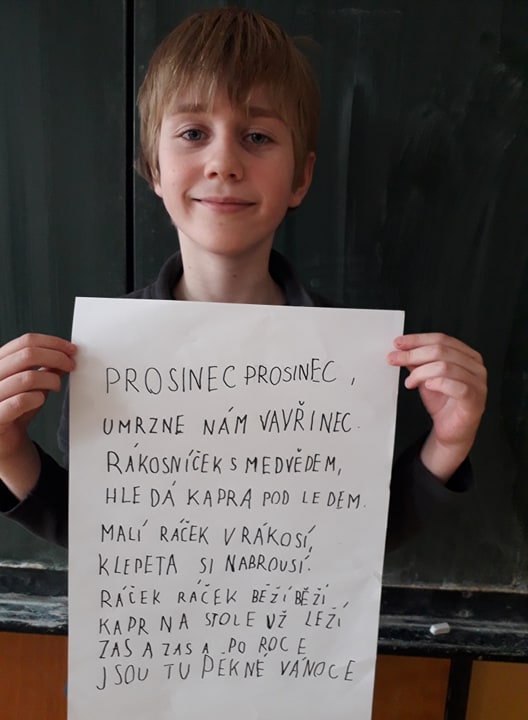 PROSINEC PROSINEC,
UMRZNE NÁM VAVŘINEC.
RÁKOSNÍČEK S MEDVĚDEM,
HLEDÁ KAPRA POD LEDEM.
MALÍ RÁČEK V RÁKOSÍ,
KLEPETA SI NABROUSÍ.
RÁČEK RÁČEK BĚŽÍ BĚŽÍ
KAPR NA STOLE UŽ LEŽÍ
ZAS A ZAS A PO ROCE
JSOU TU PĚKNÉ VÁNOCE